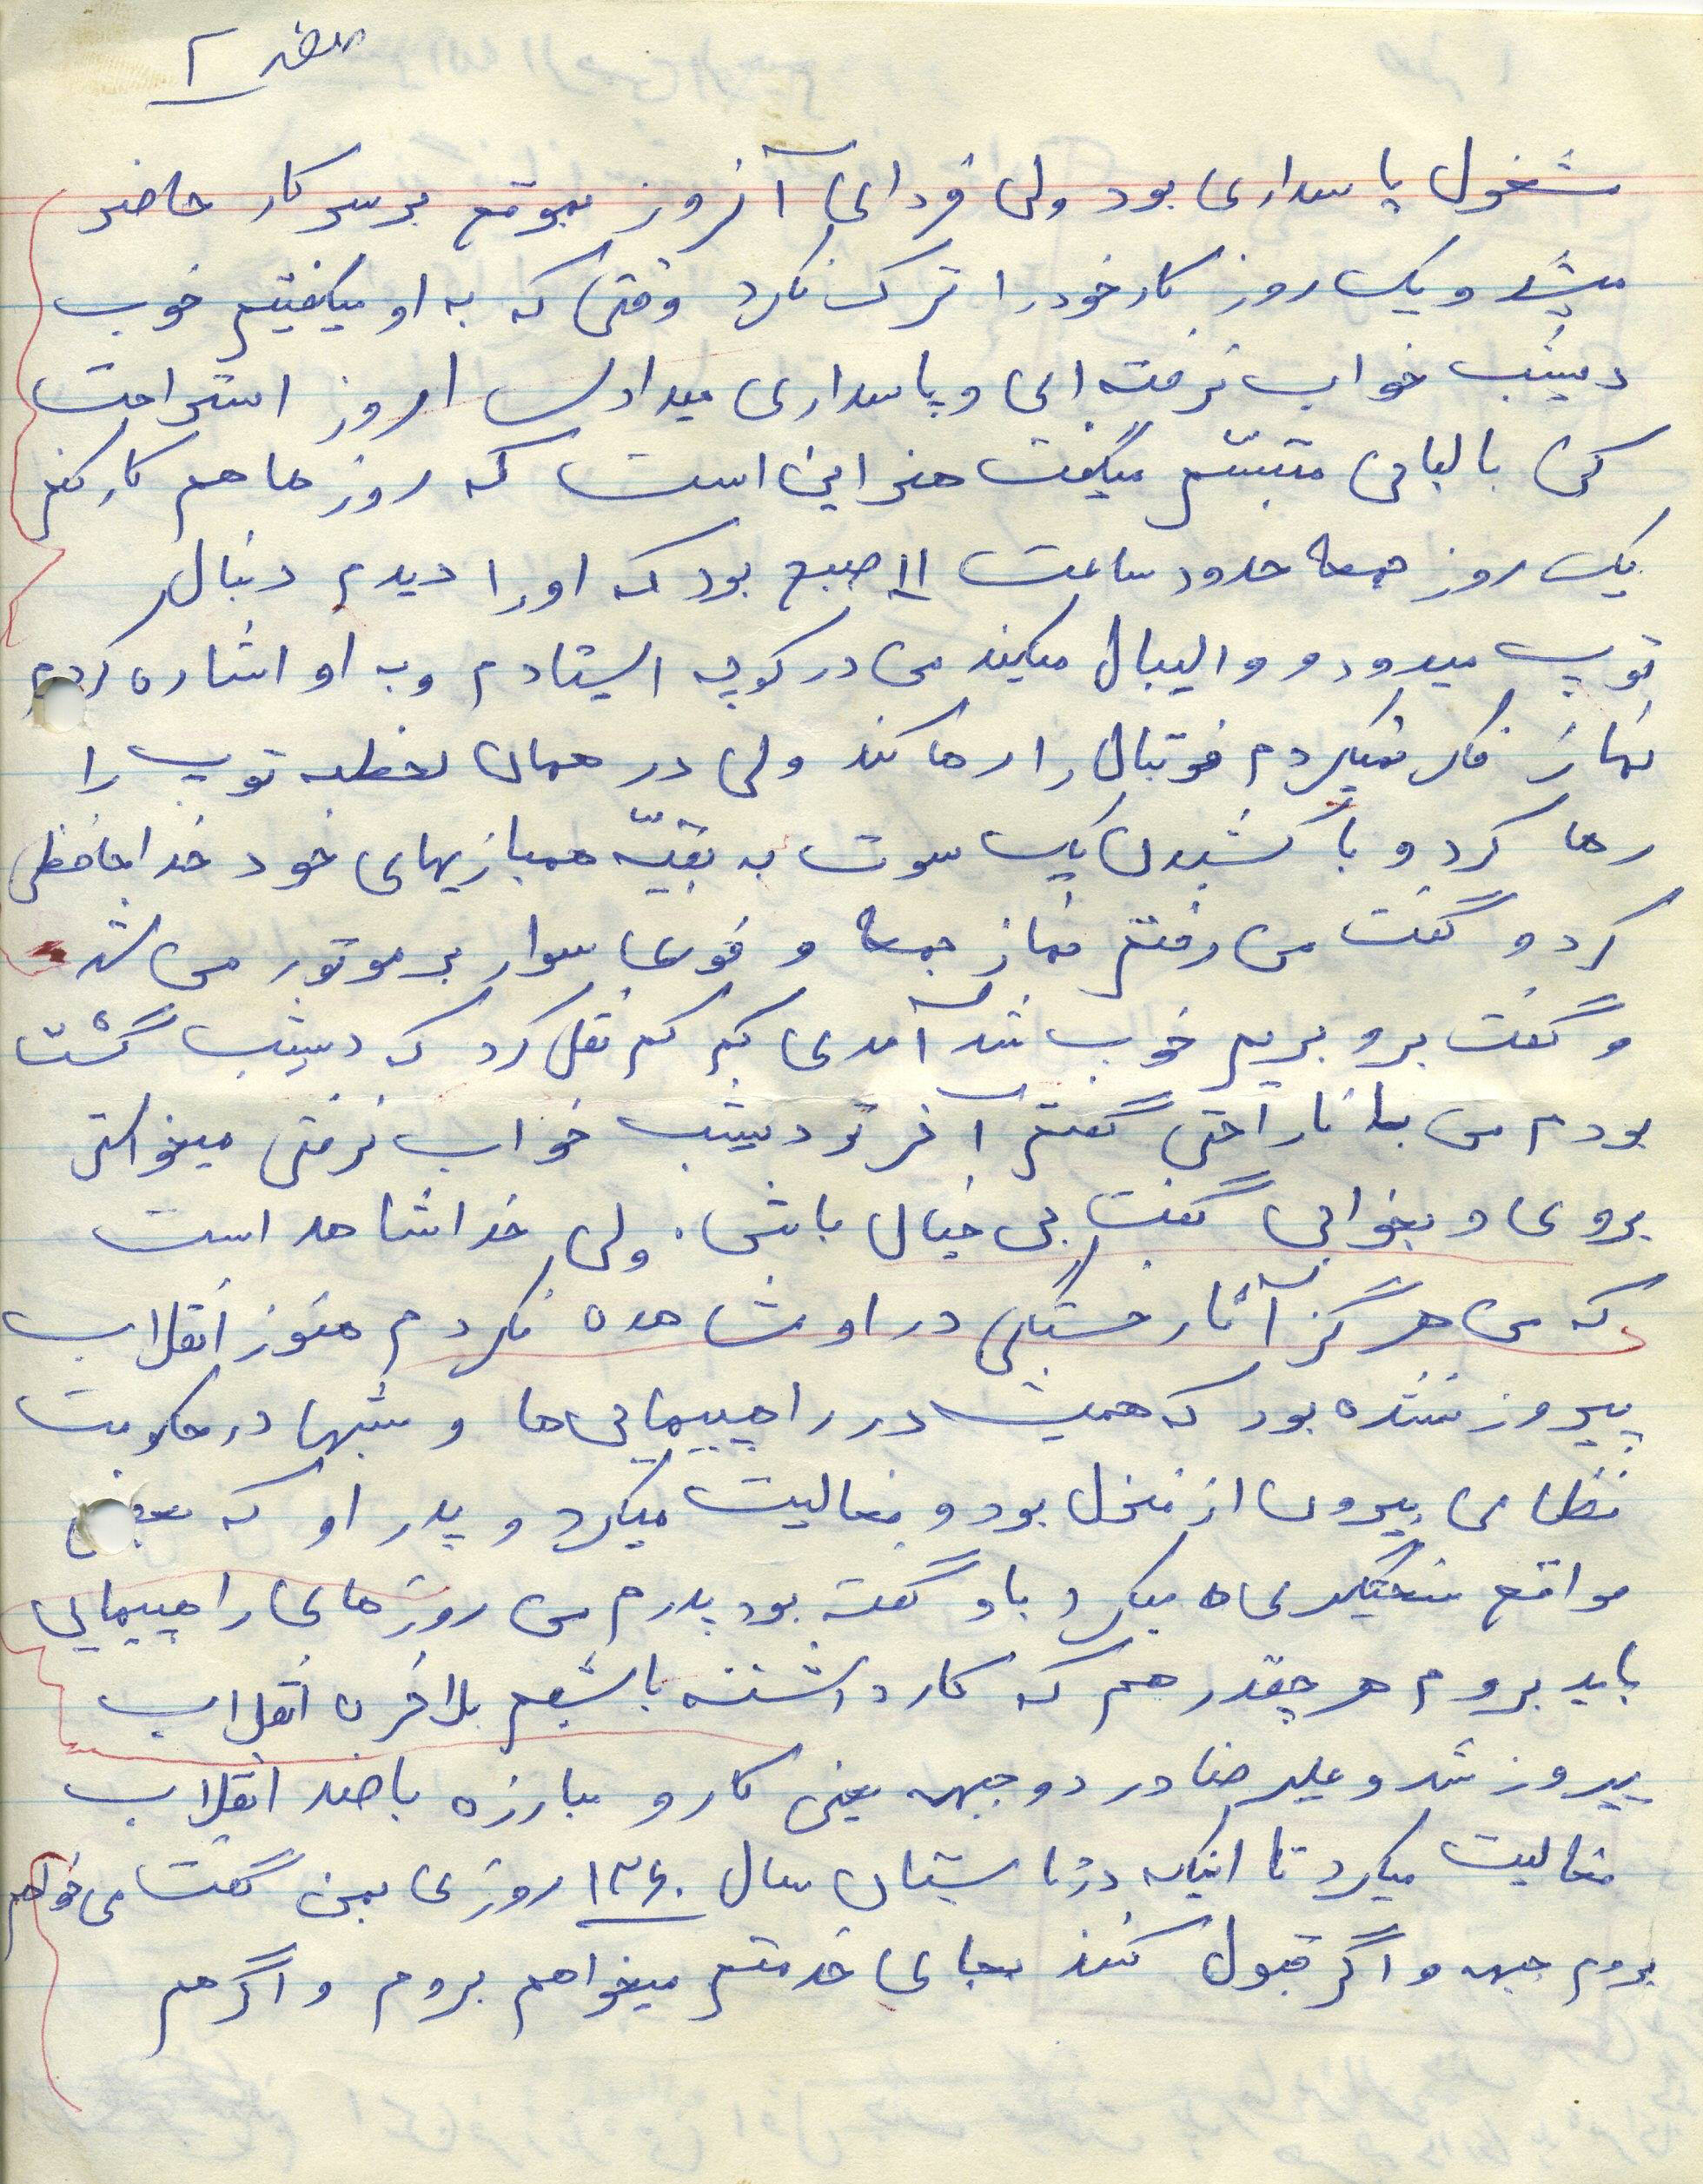 صفحه ۲
مشغول پاسداری بود ولی فردای آنروز بموقع بر سر کار حاضر
میشد و یک روز کار خود را ترک نکرد وقتی که به او میگفتیم خوب
دیشب خواب نرفته ای و پاسداری میدادی امروز استراحت
کن با لبانی متبسّم میگفت هنر این است که روزها هم کار کنم
یک روز جمعه حدود ساعت ۱۱ صبح بود که او را دیدم دنبال
توپ میدود و والیبال میکند من در کوچه ایستادم و به او اشاره کردم
نماز فکر نمیکردم فوتبال را رها کند ولی در همان لحظه توپ را
رها کرد و با کشیدن یک سوت به بقیّه همبازیهای خود خداحافظی
کرد و گفت من رفتم نماز جمعه و فوری سوار بر موتور من شد
و گفت برو بریم خوب شد آمدی کم کم نقل کرد که دیشب گشت
بودم من با ناراحتی گفتم آخر تو دیشب خواب نرفتی میخواستی
بروی و بخوابی گفت بی خیال باش. ولی خدا شاهد است
که من هرگز آثار خستگی در او مشاهده نکردم هنوز انقلاب
پیروز نشده بود که همیشه در راهپیمایی ها و شبها در حکومت
نظامی بیرون از منزل بود و فعالیت میکرد و پدر او که بعضی
مواقع سختگیری میکرد باو گفته بود پدرم من روزهای راهپیمایی
باید بروم هر چقدر هم که کار داشته باشیم بلاخره انقلاب
پیروز شد و علیرضا در دو جبهه یعنی کار و مبارزه با ضد انقلاب
فعالیت میکرد تا اینکه در تابستان سال ۱۳۶۰ روزی بمن گفت می خواهم
بروم جبهه و اگر قبول کنند بجای خدمتم میخواهم بروم و اگر هم